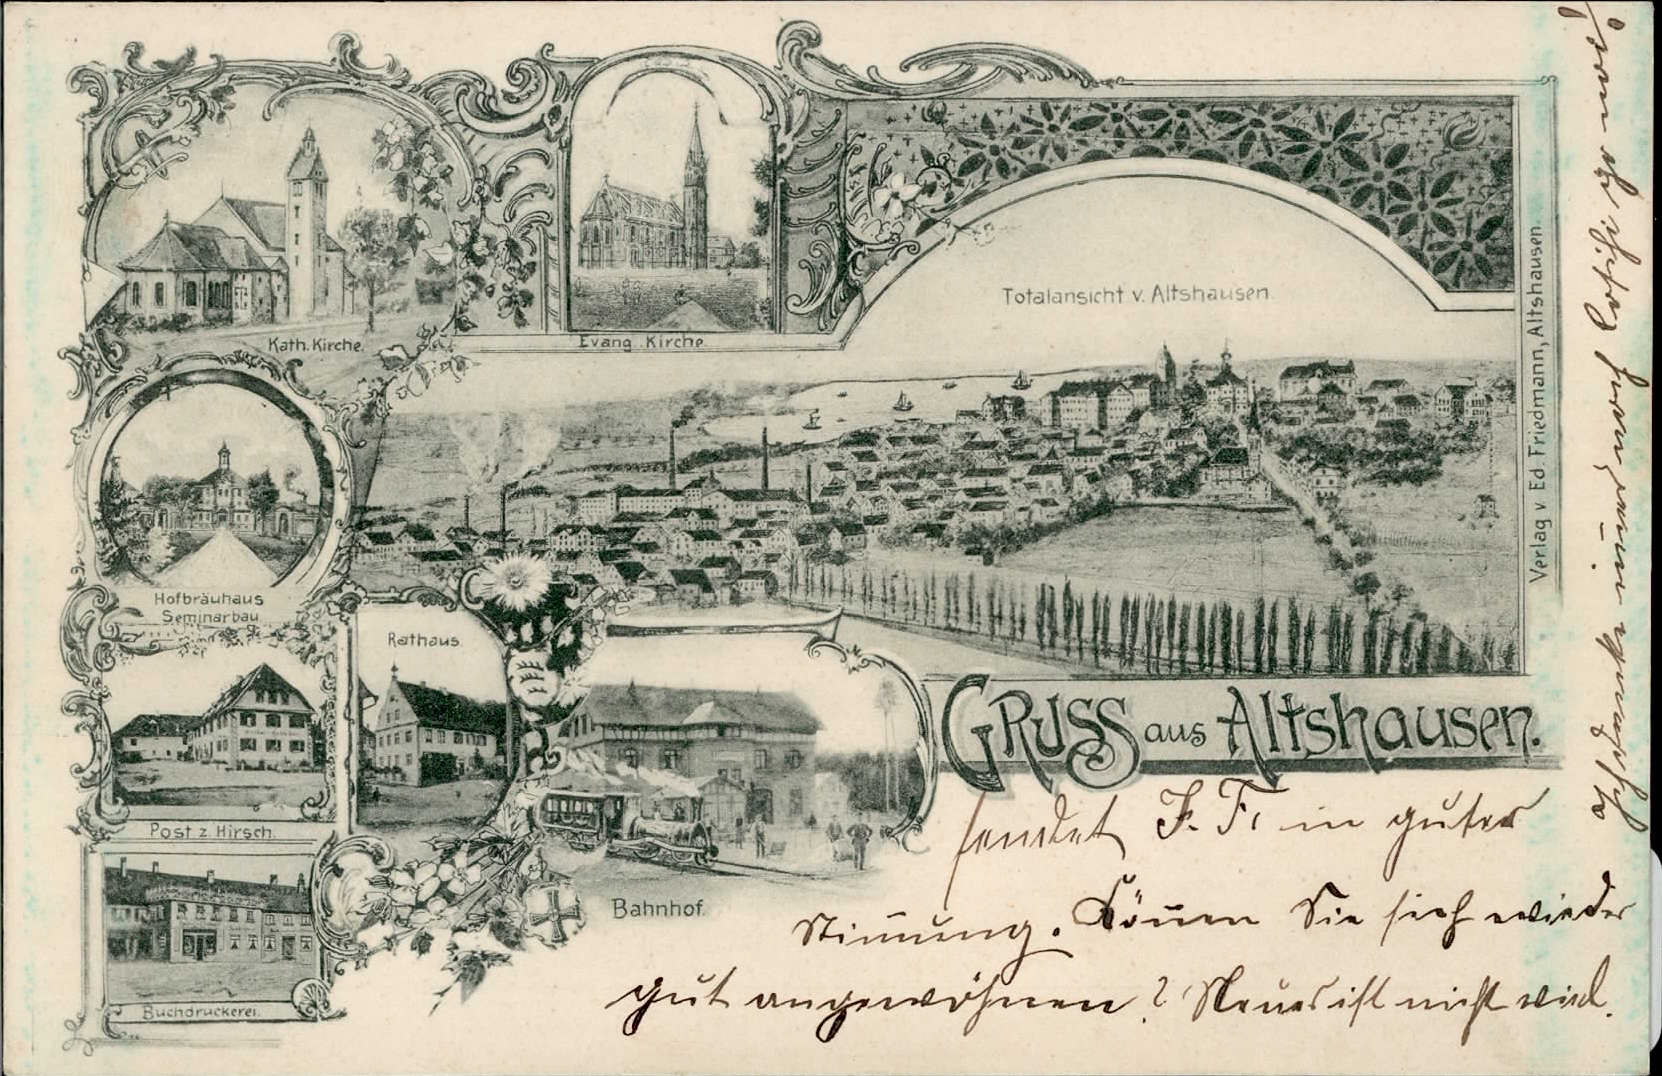 Kath. Kirche.
Evang. Kirche.
Totalansicht v. Altshausen.
Verlag v. Ed Friedmann, Altshausen.
Hofbräuhaus
Seminarbau
Rathaus.
Post z. Hirsch.
Bahnhof.
Buchdruckerei.
Gruss aus Altshausen.
sendet F. F. in guter
Stimmung. Können Sie sich wieder
gut angewöhnen? Neues ist nicht viel.